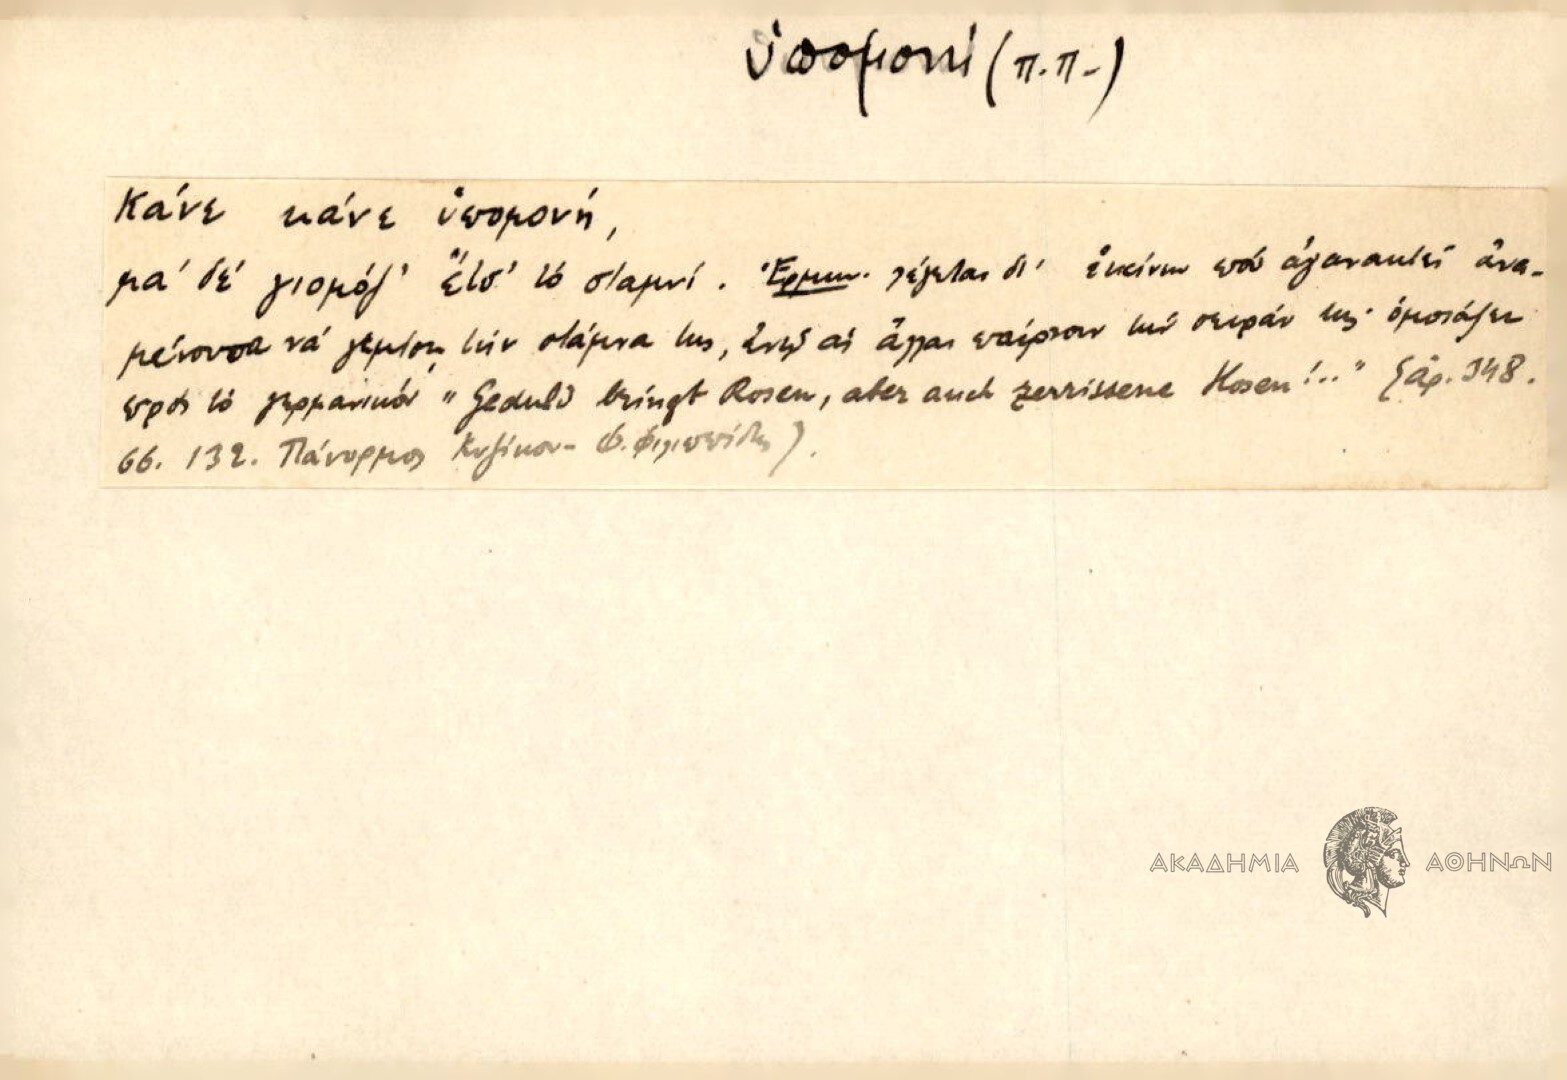 ὑπομονή (π.π.)
Κάνε κάνε ὑπομονή,
μα' δέ γιομόζ' ἔτσ' τό σταμνί. Ἑρμην. λέγεται δι' ἐκείνην πού ἀγανακτεῖ ἀνα-
μένουσα νά γεμίσῃ τήν στάμνα της, ἐνῷ αἱ ἄλλαι παίρνουν τήν σειράν της. ὁμοιάζει
πρός τό γερμανικόν "Geduld bringt Rosen, aber auch zerrissene Hosen!.." ἀρ. 348.
66. 132. Πάνορμος Κυζίκου - Φ. Φιλιππίδης).
ΑΚΑΔΗΜΙΑ ΑΘΗΝΩΝ